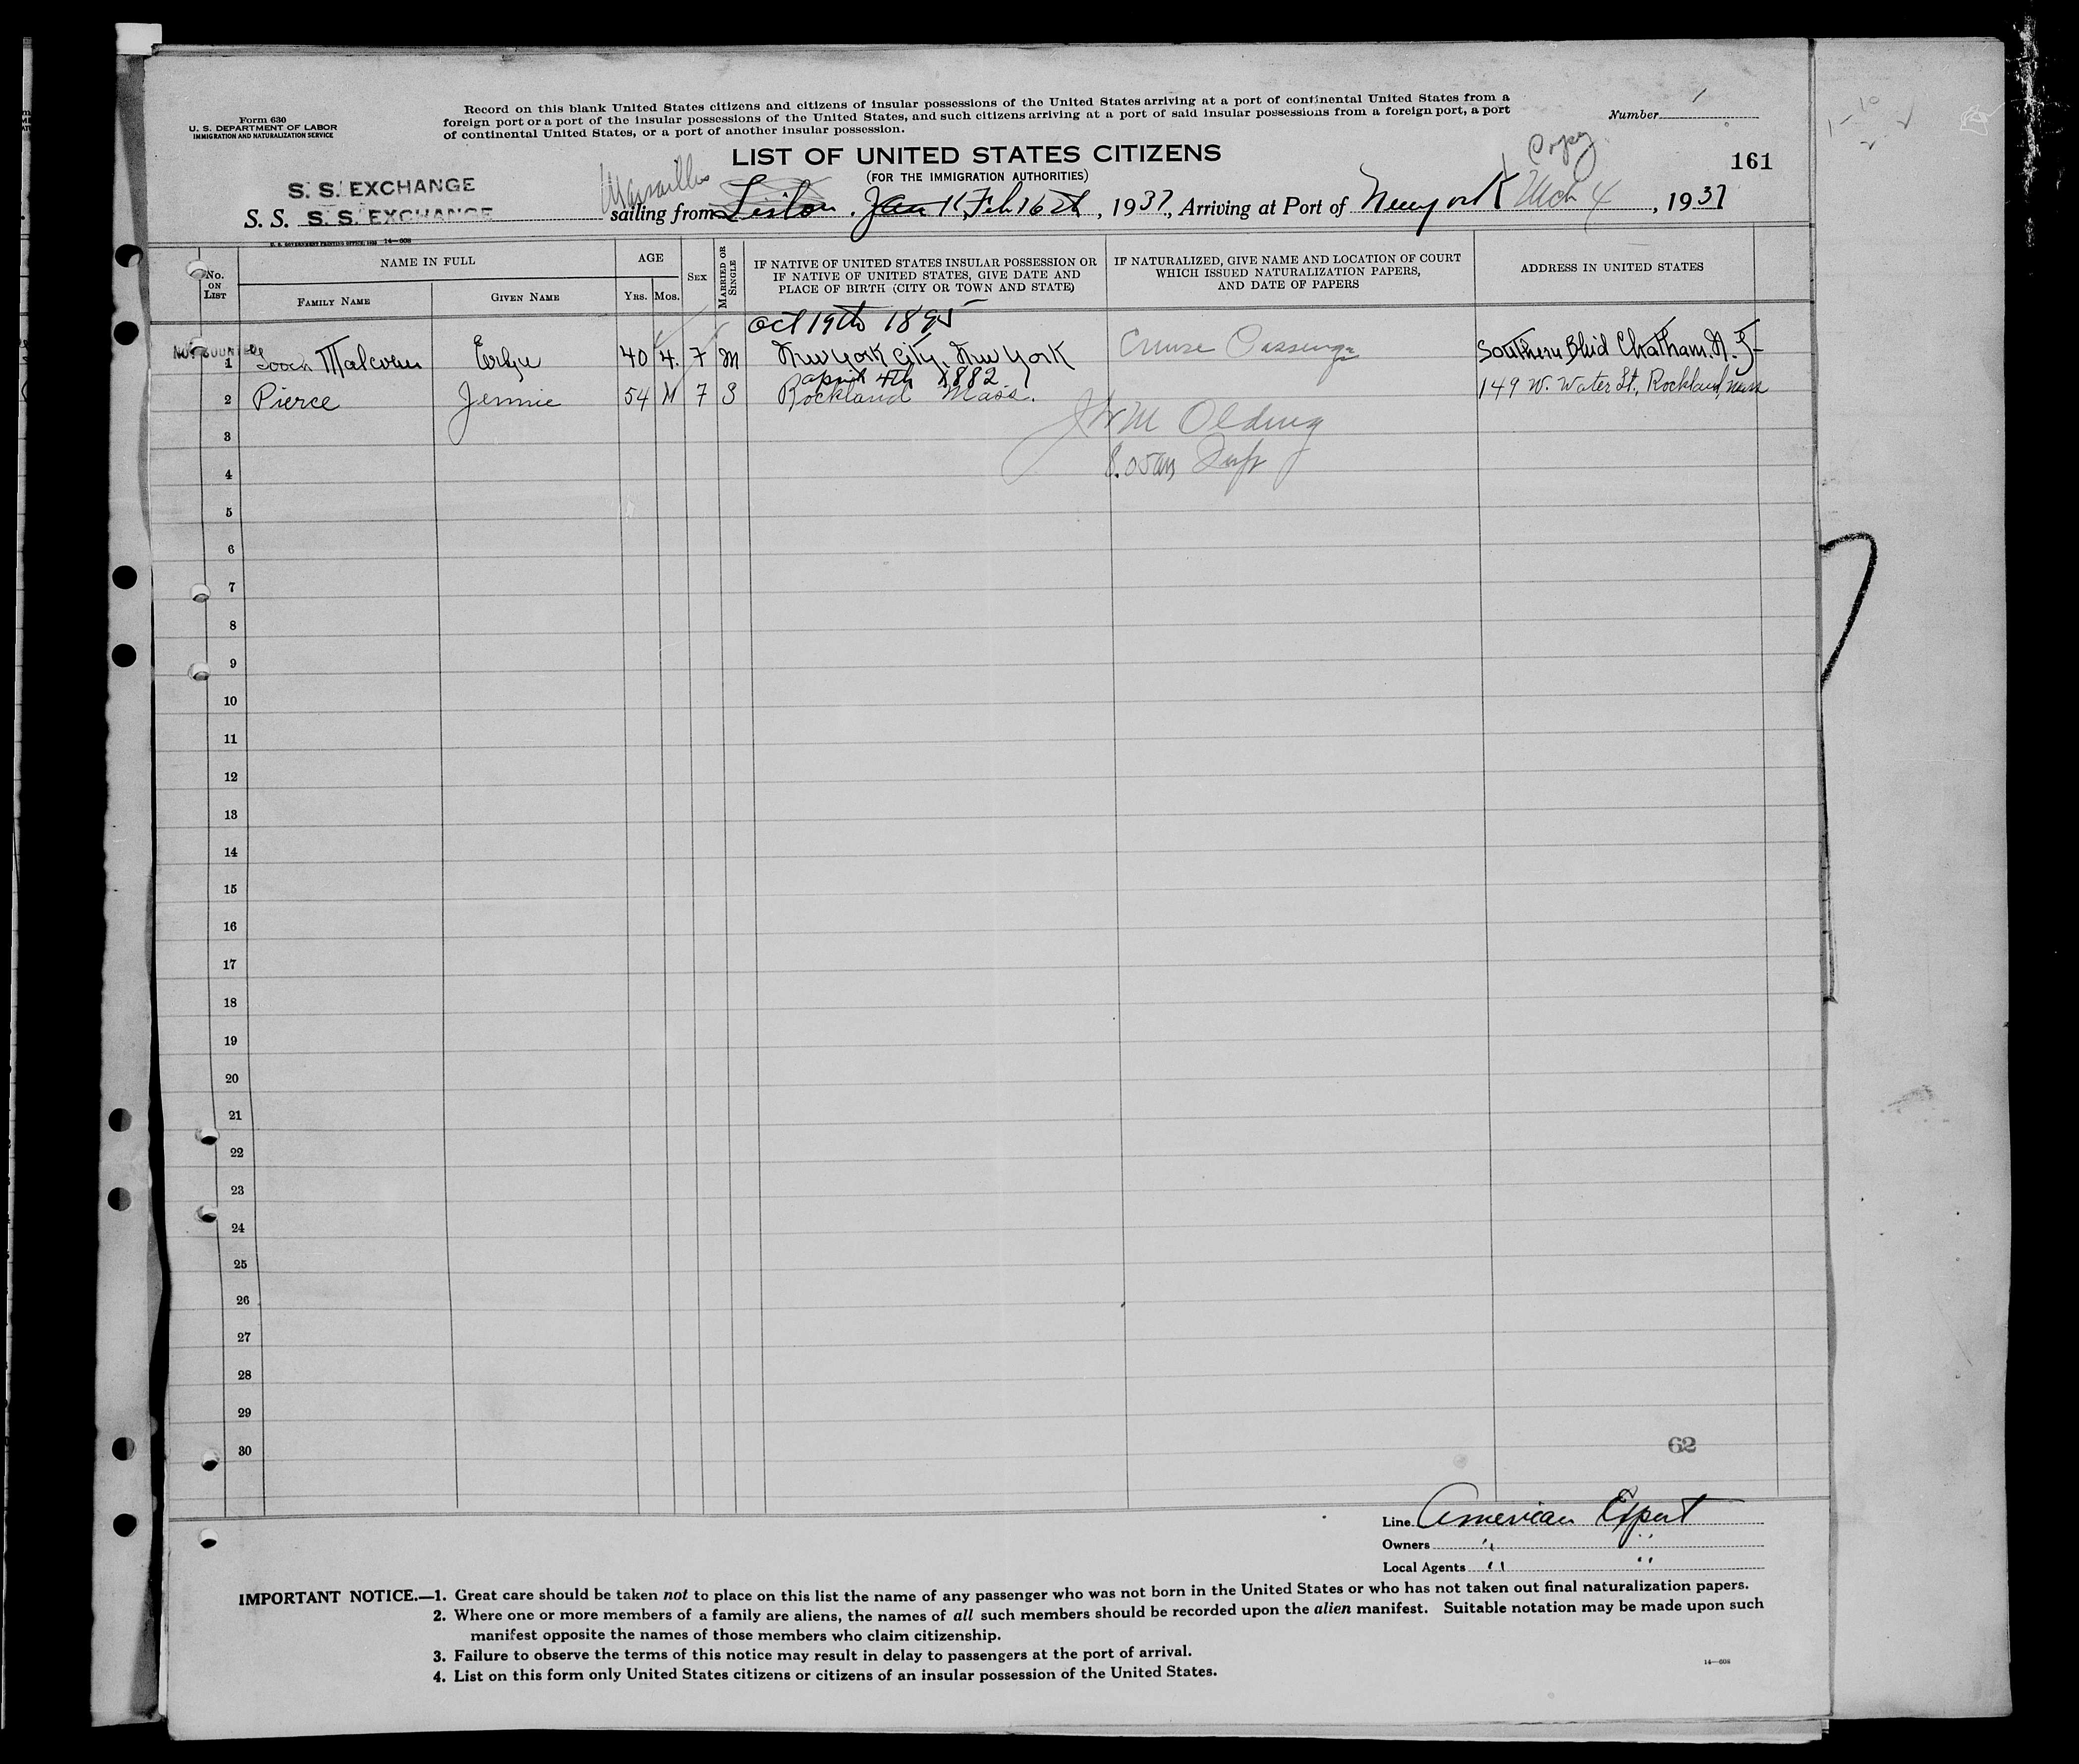 Form 630
U. S. DEPARTMENT OF LABOR
IMMIGRATION AND NATURALIZATION SERVICE
Record on this blank United States citizens and citizens of insular possessions of the United States arriving at a port of continental United States from a
foreign port or a port of the insular possessions of the United States, and such citizens arriving at a port of said insular possessions from a foreign port, a port
of continental United States, or a port of another insular possession.
Number 1
LIST OF UNITED STATES CITIZENS
(FOR THE IMMIGRATION AUTHORITIES)
Copy
161
S. S. EXCHANGE
Marseilles
S. S. S. S. EXCHANGE sailing from Lisbon. Jan Feb 16th, 1937, Arriving at Port of New york Mch 4, 1937
U. S. GOVERNMENT PRINTING OFFICE: 14—608
No. ON LIST
NAME IN FULL
FAMILY NAME
GIVEN NAME
AGE
YRS. MOS.
SEX
MARRIED OR SINGLE
IF NATIVE OF UNITED STATES INSULAR POSSESSION OR
IF NATIVE OF UNITED STATES, GIVE DATE AND
PLACE OF BIRTH (CITY OR TOWN AND STATE)
IF NATURALIZED, GIVE NAME AND LOCATION OF COURT
WHICH ISSUED NATURALIZATION PAPERS,
AND DATE OF PAPERS
ADDRESS IN UNITED STATES
Oct 19th 1895
NOT COUNTED
1 Malcolm 40 4. 7 M New York City, New York Cruise Passenger Southern Blvd Chatham. N. J-
April 4th 1882
2 Pierce Jennie 54 M 7 S Rockland Mass. 149 W. Water St, Rockland, Mass
3 Olding
4 8.05am Insp
5
6
7
8
9
10
11
12
13
14
15
16
17
18
19
20
21
22
23
24
25
26
27
28
29
30
62
Line American Export
Owners " "
Local Agents " "
IMPORTANT NOTICE.—1. Great care should be taken not to place on this list the name of any passenger who was not born in the United States or who has not taken out final naturalization papers.
2. Where one or more members of a family are aliens, the names of all such members should be recorded upon the alien manifest. Suitable notation may be made upon such
manifest opposite the names of those members who claim citizenship.
3. Failure to observe the terms of this notice may result in delay to passengers at the port of arrival.
4. List on this form only United States citizens or citizens of an insular possession of the United States.
14—608